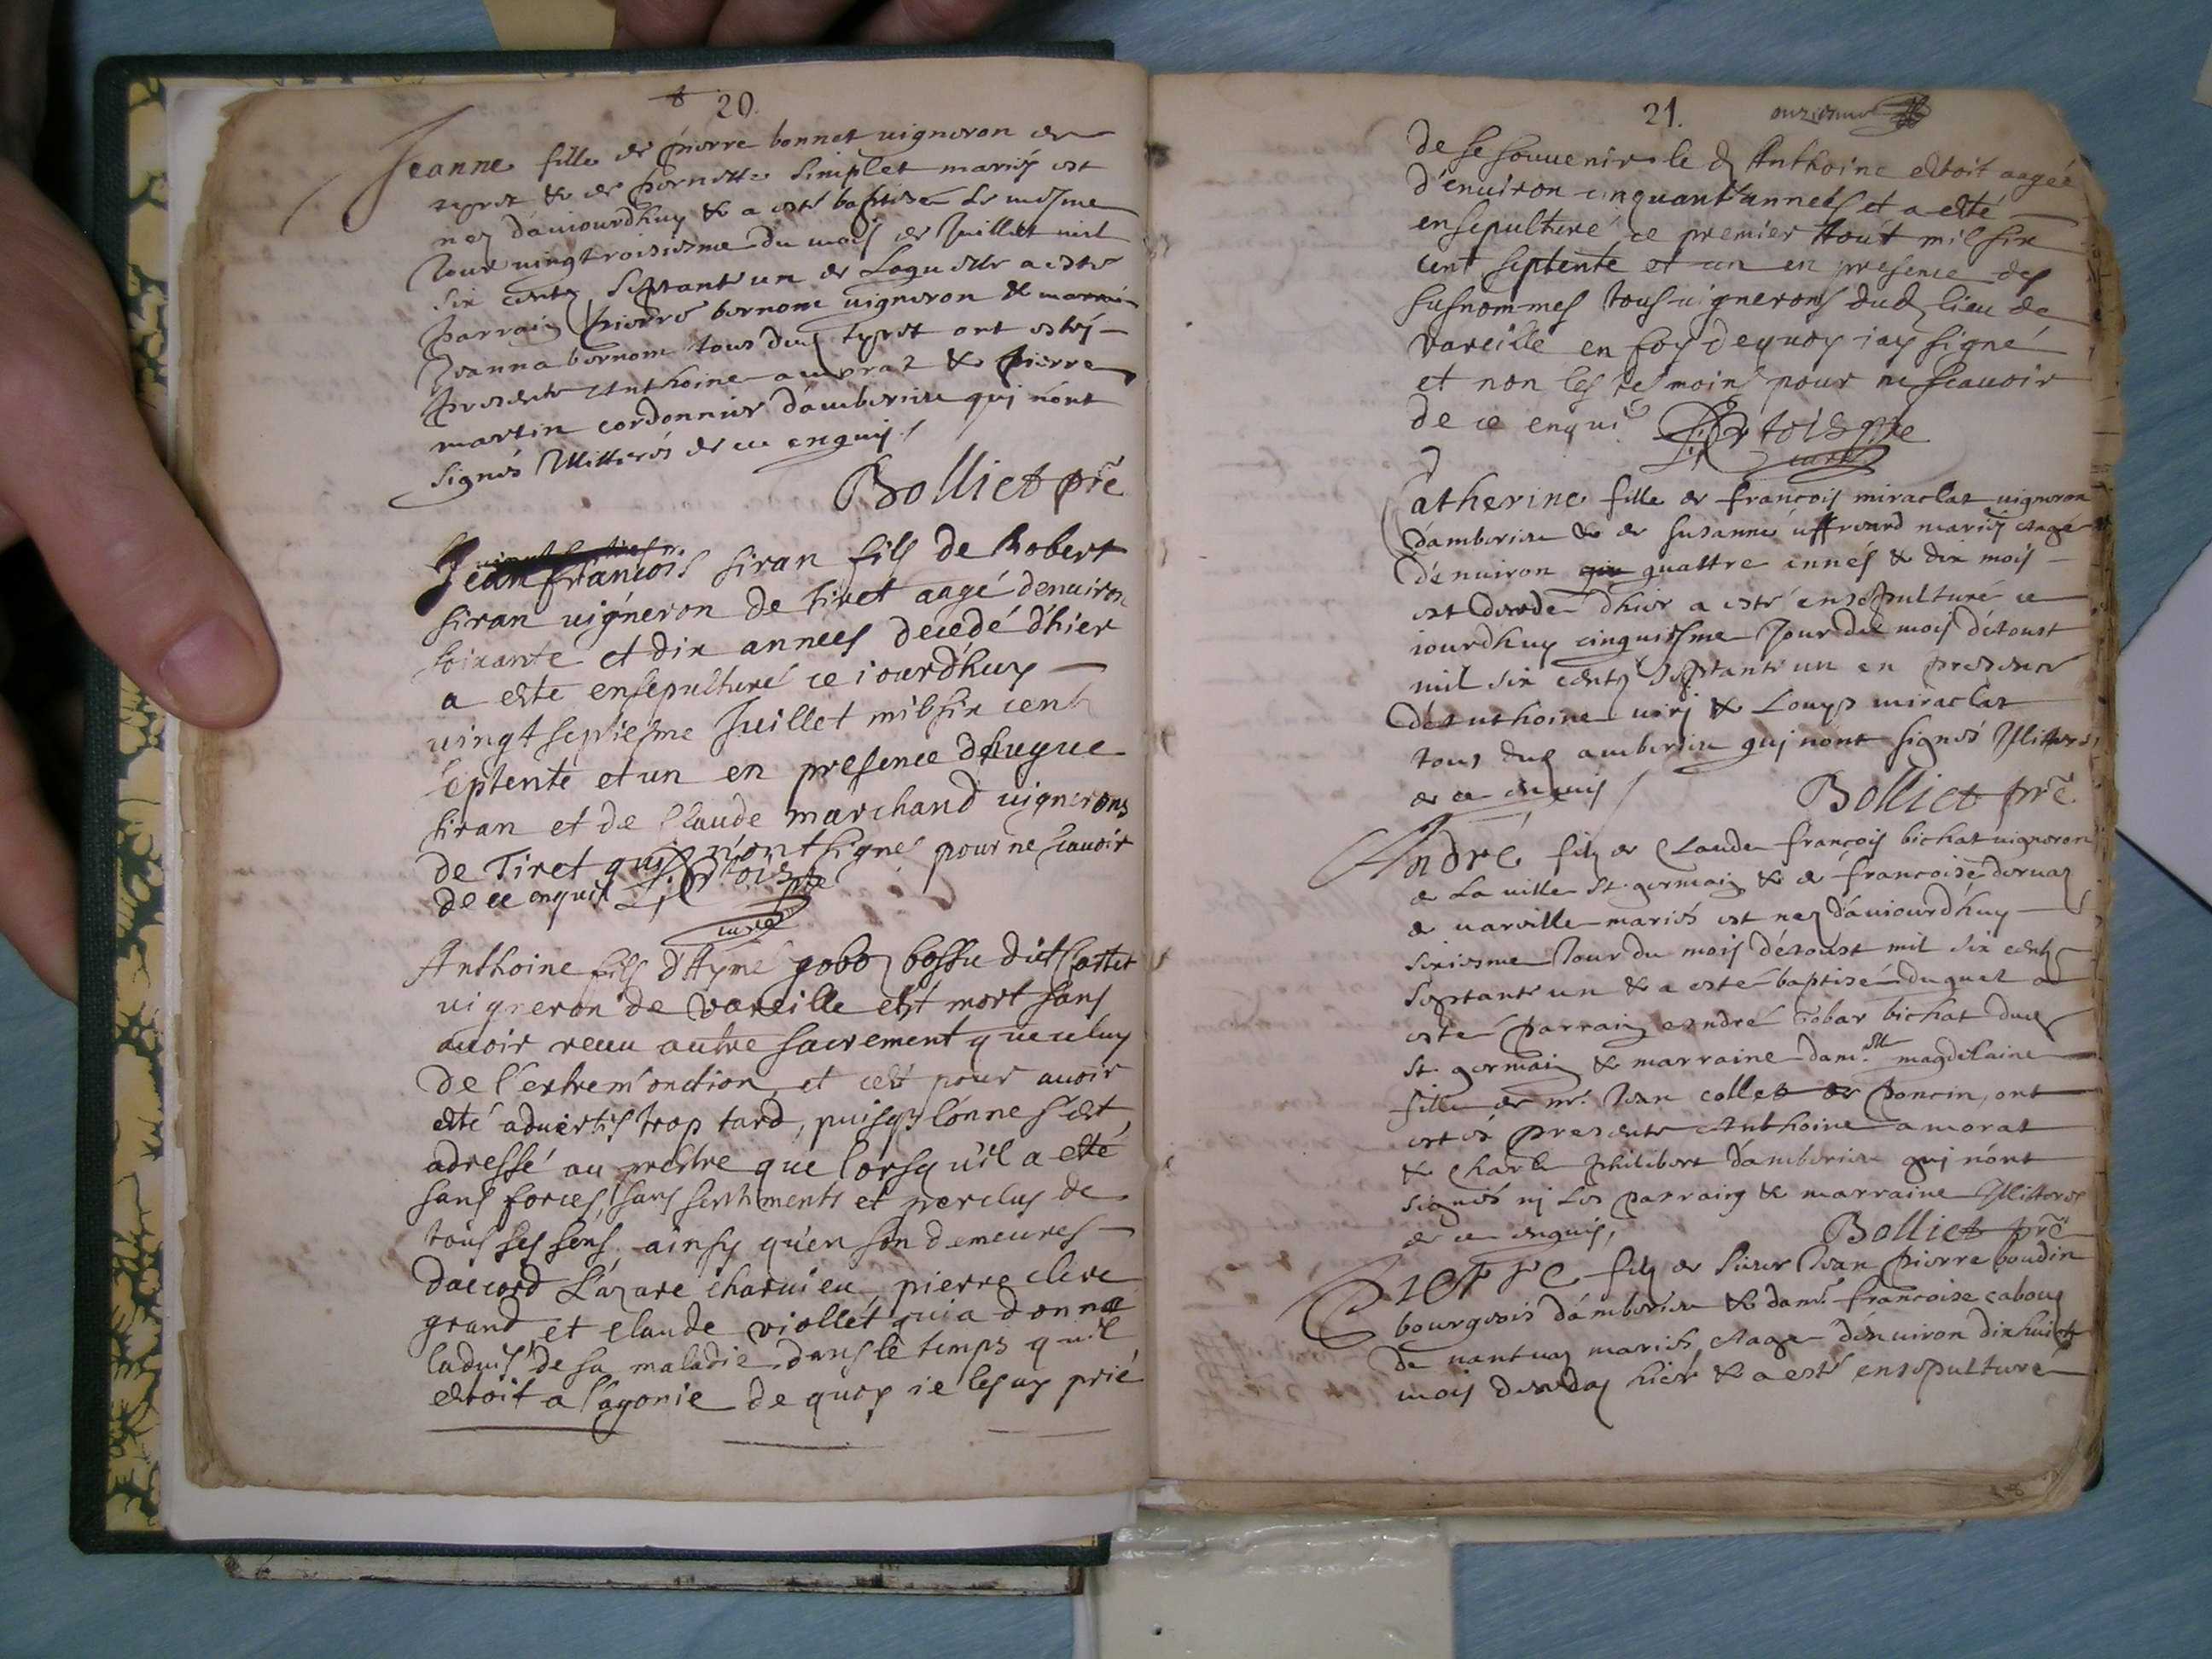 20.
Jeanne fille de pierre bonnet vigneron de
tyret & de pernette simplet mariés est
nez d'aujourdhuy & a esté baptisée le mesme
Jour vingtroisiesme du mois de Juillet mil
six cents septant'un de laquelle a esté
parrain pierre bernom vigneron & marraine
Jeanna bernom tous dud tyret ont estéz
presents Anthoine amorat & pierre
martin cordonnier d'amberieu qui n'ont
signés Illitterés de ce enquis
Bolliet pre
Jean francois siran fils de Robert
siran vigneron de tiret aagé denuiron
soixante et dix annees decedé d'hier
a esté ensepulturé ce iourdhuy
vingt septiesme Juillet mil six cent
septente et un en presence d'hugue
siran et de Claude marchand vignerons
de Tiret qui n'ont signé pour ne scauoir
de ce enquis
pre
curé
Anthoine fils d'Ayme goboz bossu dict
vigneron de vareille est mort sans
auoir receu autre sacrement que celuy
de l'extrem'onction et cest pour auoir
esté aduertis trop tard, puisq' l'on ne s'est
adressé au prestre que lorsqu'il a esté
sans forces, sans sentiments et perclus de
tous ses sens ainsy qu'en son demeures
daccord Lazare charuieu pierre clerc
grand et claude viollet qui a donné
laduis de sa maladie dans le temps qu'il
estoit a l'agonie de quoy ie les ay prié
21.
de se souuenir le d Anthoine estoit aagée
d'enuiron cinquant'annees et a esté
ensepulturé ce premier Aout mil six
cent septente et un en presence des
susnommes tous vignerons dud lieu de
vareille en foy dequoy iay signé
et non les tesmoins pour ne scauoir
de ce enquis
pre
curé
Catherine fille de francois miraclat vigneron
d'amberieu & de susanne mariés Aagé
d'enuiron quattre annés & dix mois
est decedé d'hier a esté ensepulturé ce
iourdhuy cinquiesme Jour du mois d'Aoust
mil six cents septant'un en presence
d'Anthoine & Louys miraclat
tous dud amberieu qui n'ont signés Illitterés
de ce enquis
Bolliet pre
André filz de Claude francois bichat vigneron
de La ville St. germain & de francoise deruaz
de vareille mariés est nez d'aujourdhuy
sixiesme Jour du mois d'Aoust mil six cents
septant'un & a esté baptisé duquel a
esté parrain andré bichat dud
St. germain & marraine dam.lle magdelaine
fille de mr. Jean collet de poncin, ont
estés presents Anthoine amorat
& Charle philibert d'amberieu qui n'ont
signés ni les parrain & marraine Illitterés
de ce enquis,
Bolliet pre
Pierre filz de sieur Jean pierre boudin
bourgeois d'amberieu & dam.e francoise
de nantuaz mariés, Aagé d'enuiron dixhuict
mois decedaz hier & a esté ensepulturé